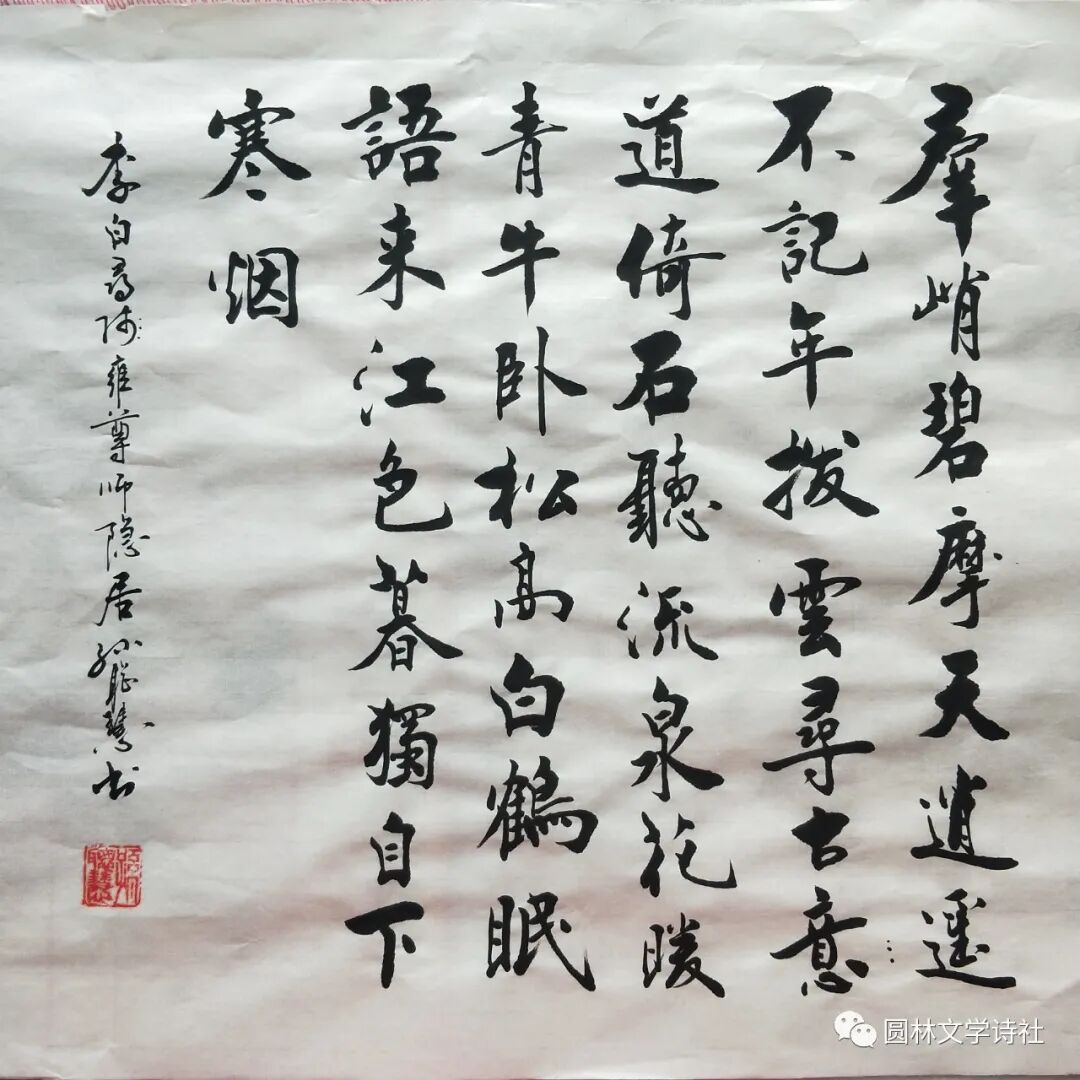 羣峭碧摩天逍遥
不記年拨雲尋古意
道倚石聽流泉花暖
青牛卧松高白鶴眠
語来江色暮獨自下
寒烟
李白尋雍尊师隐居 孙聪慧书
圆林文学诗社